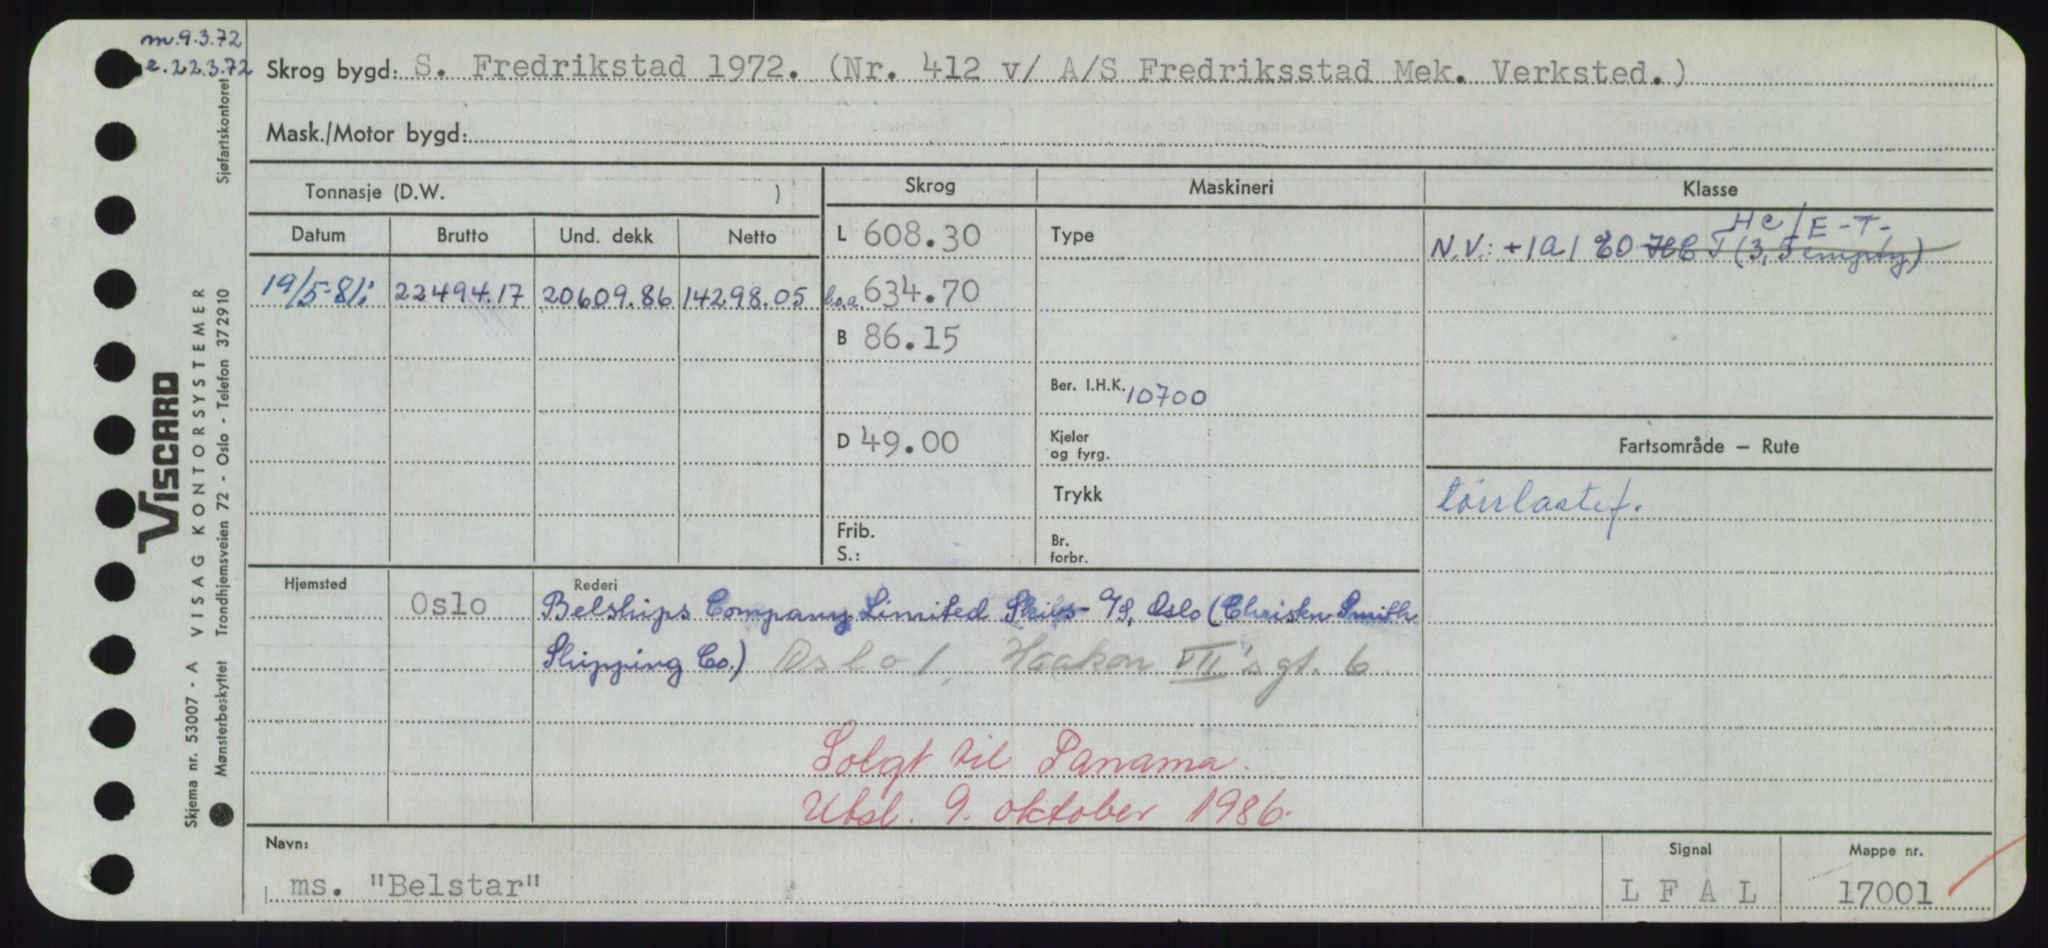 m. 9.3.72
e. 22.3.72
Skrog bygd: S. Fredrikstad 1972. (Nr. 412 v/ A/S Fredriksstad Mek. Verksted.)
Mask./Motor bygd:
Tonnasje (D.W. )
Skrog
Maskineri
Klasse
Datum Brutto Und. dekk Netto
L 608.30
Type
Hc/E-T-
N.V.: +1A1 EO HC T (3, 5 empty)
19/5-81: 22494.17 20609.86 14298.05
l.o.a. 634.70
B 86.15
Ber. I.H.K. 10700
D 49.00
Kjeler
og fyrg.
Fartsområde – Rute
Trykk
tørrlastef.
Frib.
S.:
Br.
forbr.
Hjemsted
Oslo
Rederi
Belships Company Limited Skibs-A/S, Oslo (Christen Smith
Shipping Co.) Oslo 1, Haakon VII's gt. 6
Solgt til Panama.
Utsl. 9. oktober 1986.
Navn:
ms. "Belstar"
Signal
L F A L
Mappe nr.
17001
Sjøfartskontoret
VISCARD
Skjema nr. 53007 - A VISAG KONTORSYSTEMER
Mønsterbeskyttet Trondhjemsveien 72 - Oslo - Telefon 372910